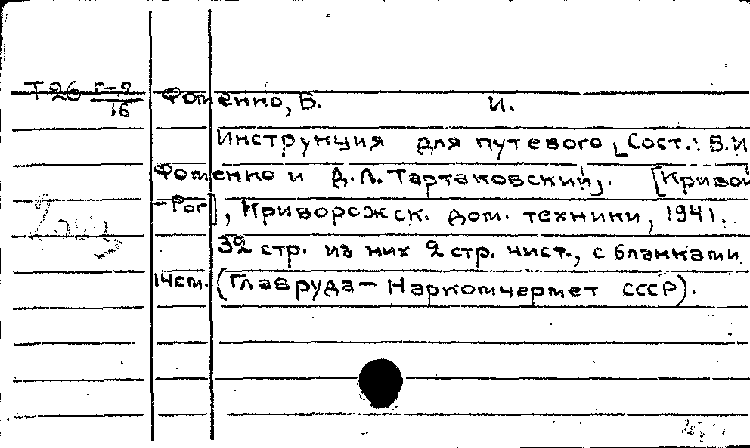 Т26 Г-7/16 Фоменко, В. И.
Инструкция для путевого [Сост.: В.И
Фоменко и Д.Л. Тартаковский]. [Кривой
-Рог], Криворожск. дом. техники, 1941.
32 стр. из них 2 стр. чист., с бланками
14см. (Главруда — Наркомчермет СССР).